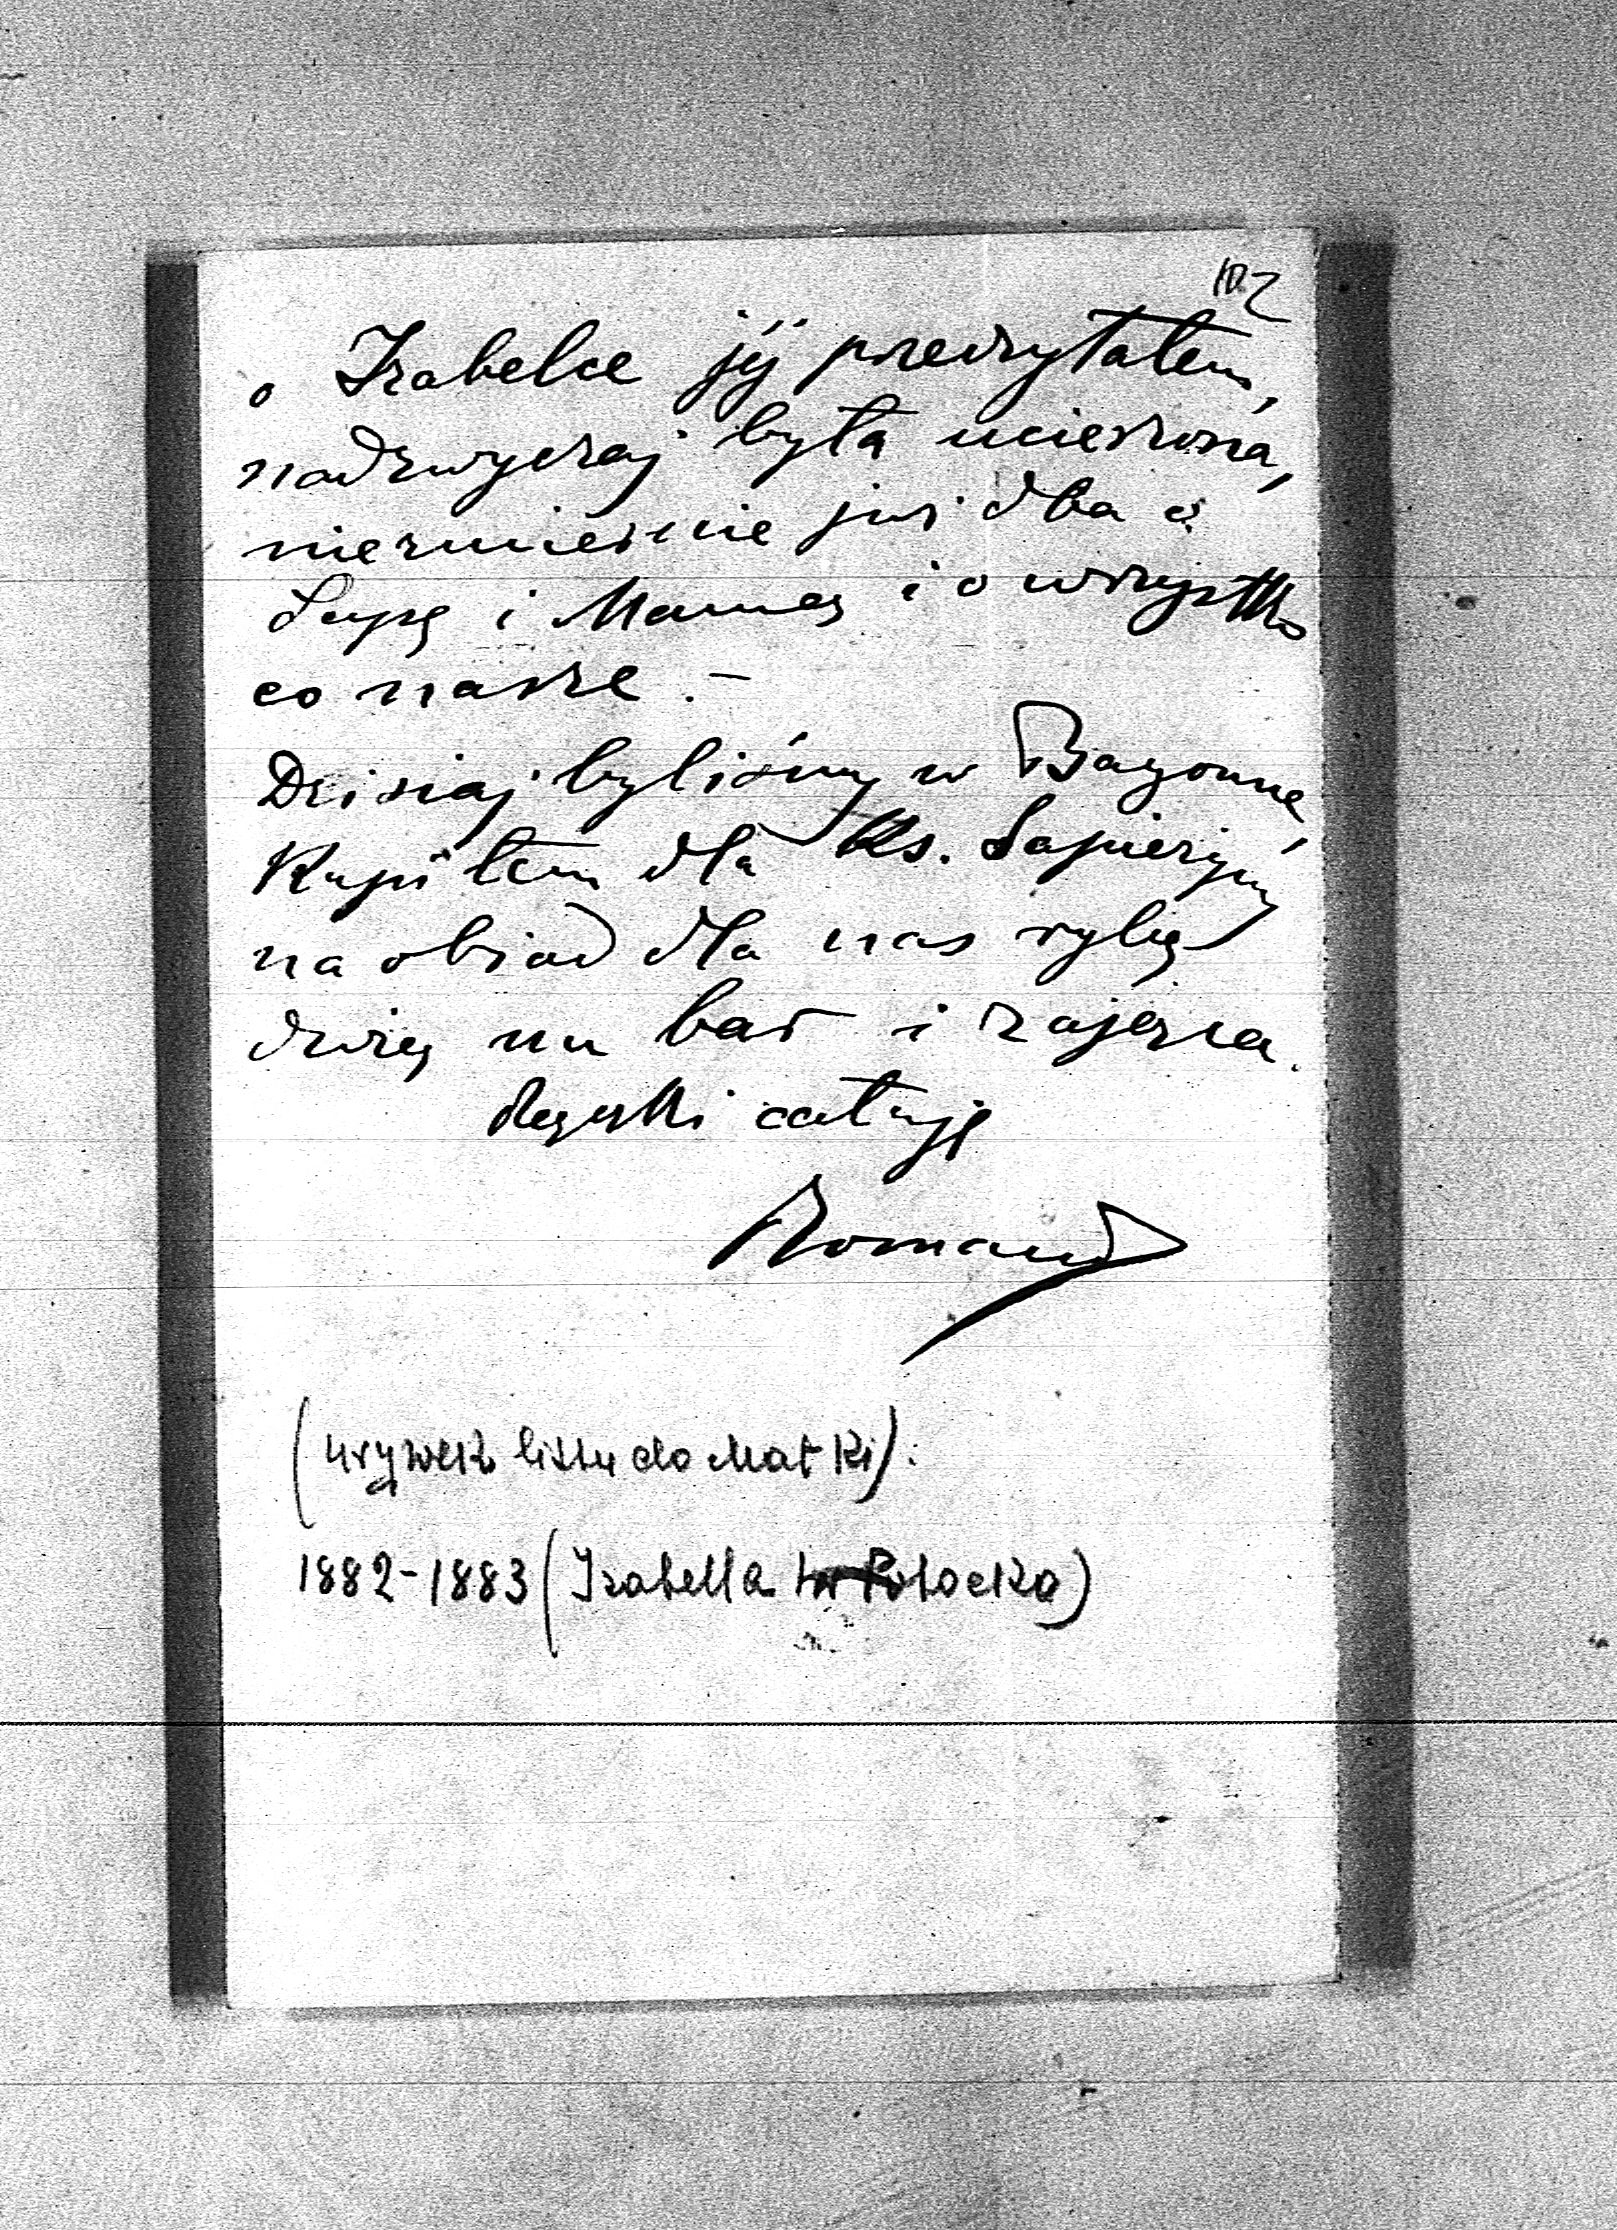 102
o Izabelce jéj przeczytałem,
nadzwyczaj była ucieszona,
niezmiernie już dba o
i Mamę i o wszystko
co nasze. –
Dzisiaj byliśmy w Bayonne,
Kupiłem dla Ks. Sapieżyny
na obiad dla nas rybę
zwią un bar i zająca.
Rączki całuję
Roman
(urywek listu do Matki).
1882-1883 (Izabella Potocka)